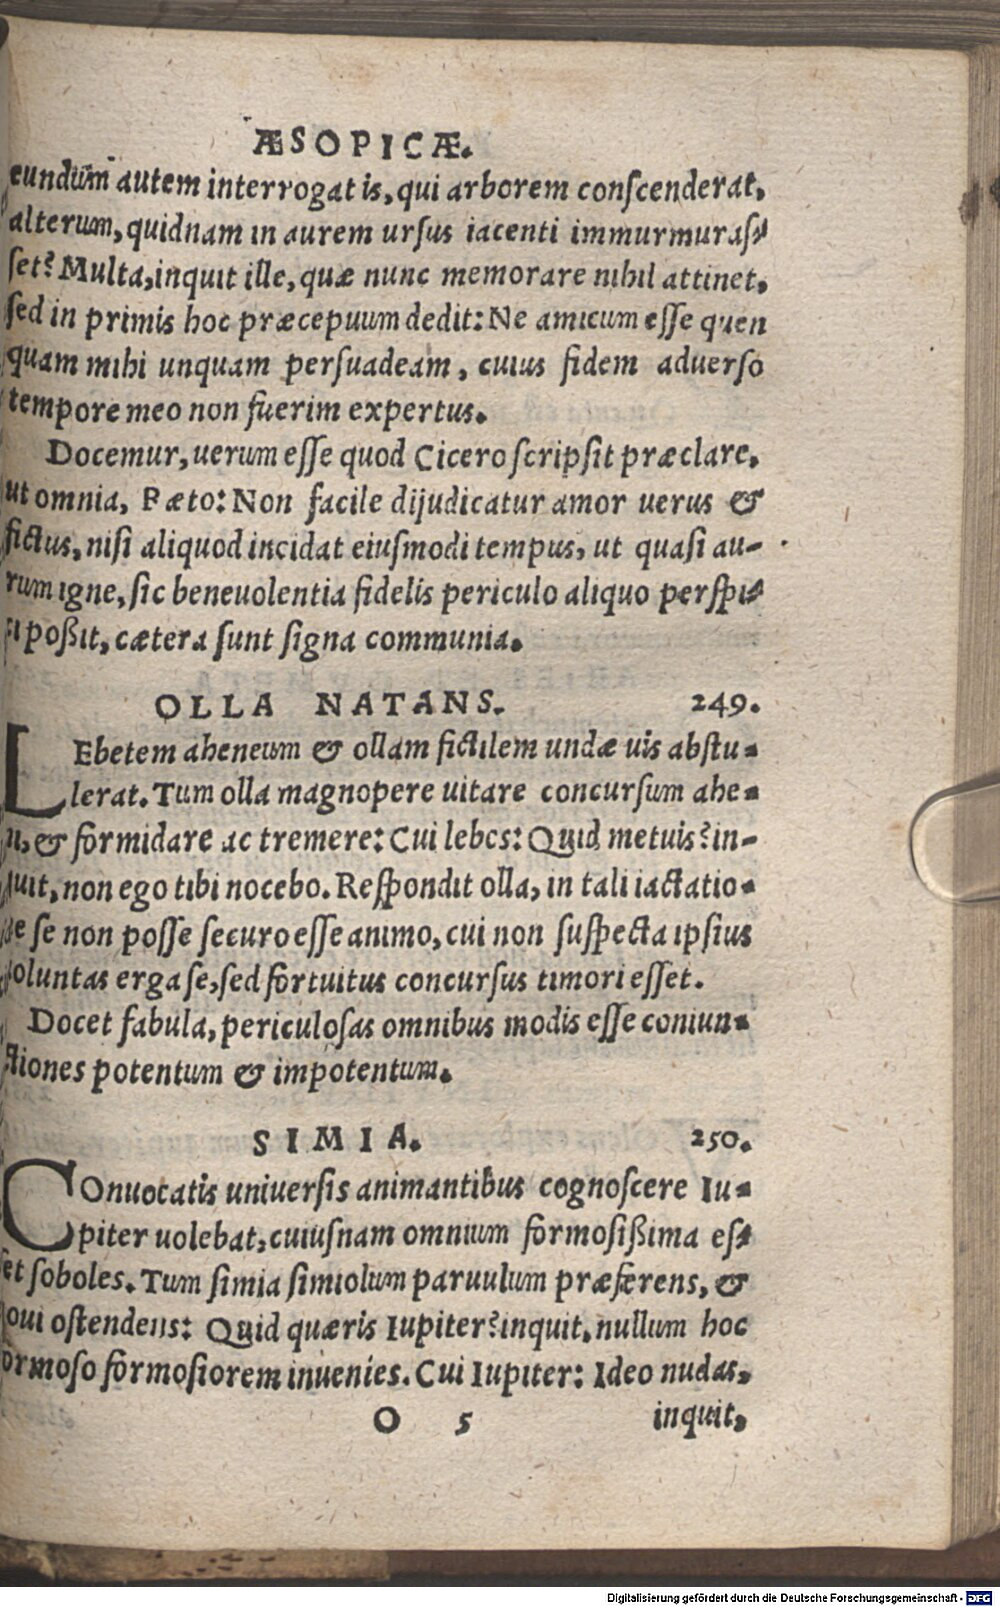 ÆSOPICÆ.
eundum autem interrogat is, qui arborem conscenderat,
alterum, quidnam in aurem ursus iacenti immurmuras-
set? Multa, inquit ille, quæ nunc memorare nihil attinet,
sed in primis hoc præcepuum dedit: Ne amicum esse quen
quam mihi unquam persuadeam, cuius fidem aduerso
tempore meo non fuerim expertus.
Docemur, uerum esse quod Cicero scripsit præclare,
ut omnia, Pæto: Non facile dijudicatur amor uerus &
fictus, nisi aliquod incidat eiusmodi tempus, ut quasi au-
rum igne, sic beneuolentia fidelis periculo aliquo perspi-
ci poßit, cætera sunt signa communia.
OLLA NATANS. 249.
LEbetem aheneum & ollam fictilem undæ uis abstu-
lerat. Tum olla magnopere uitare concursum ahe-
ni, & formidare ac tremere: Cui lebes: Quid metuis? in-
quit, non ego tibi nocebo. Respondit olla, in tali iactatio-
ne se non posse securo esse animo, cui non suspecta ipsius
uoluntas erga se, sed fortuitus concursus timori esset.
Docet fabula, periculosas omnibus modis esse coniun-
ctiones potentum & impotentum.
SIMIA. 250.
COnuocatis uniuersis animantibus cognoscere Iu-
piter uolebat, cuiusnam omnium formosißima es-
set soboles. Tum simia simiolum paruulum præferens, &
Ioui ostendens: Quid quæris Iupiter? inquit, nullum hoc
formoso formosiorem inuenies. Cui Iupiter: Ideo nudas,
O 5 inquit,
Digitalisierung gefördert durch die Deutsche Forschungsgemeinschaft - DFG